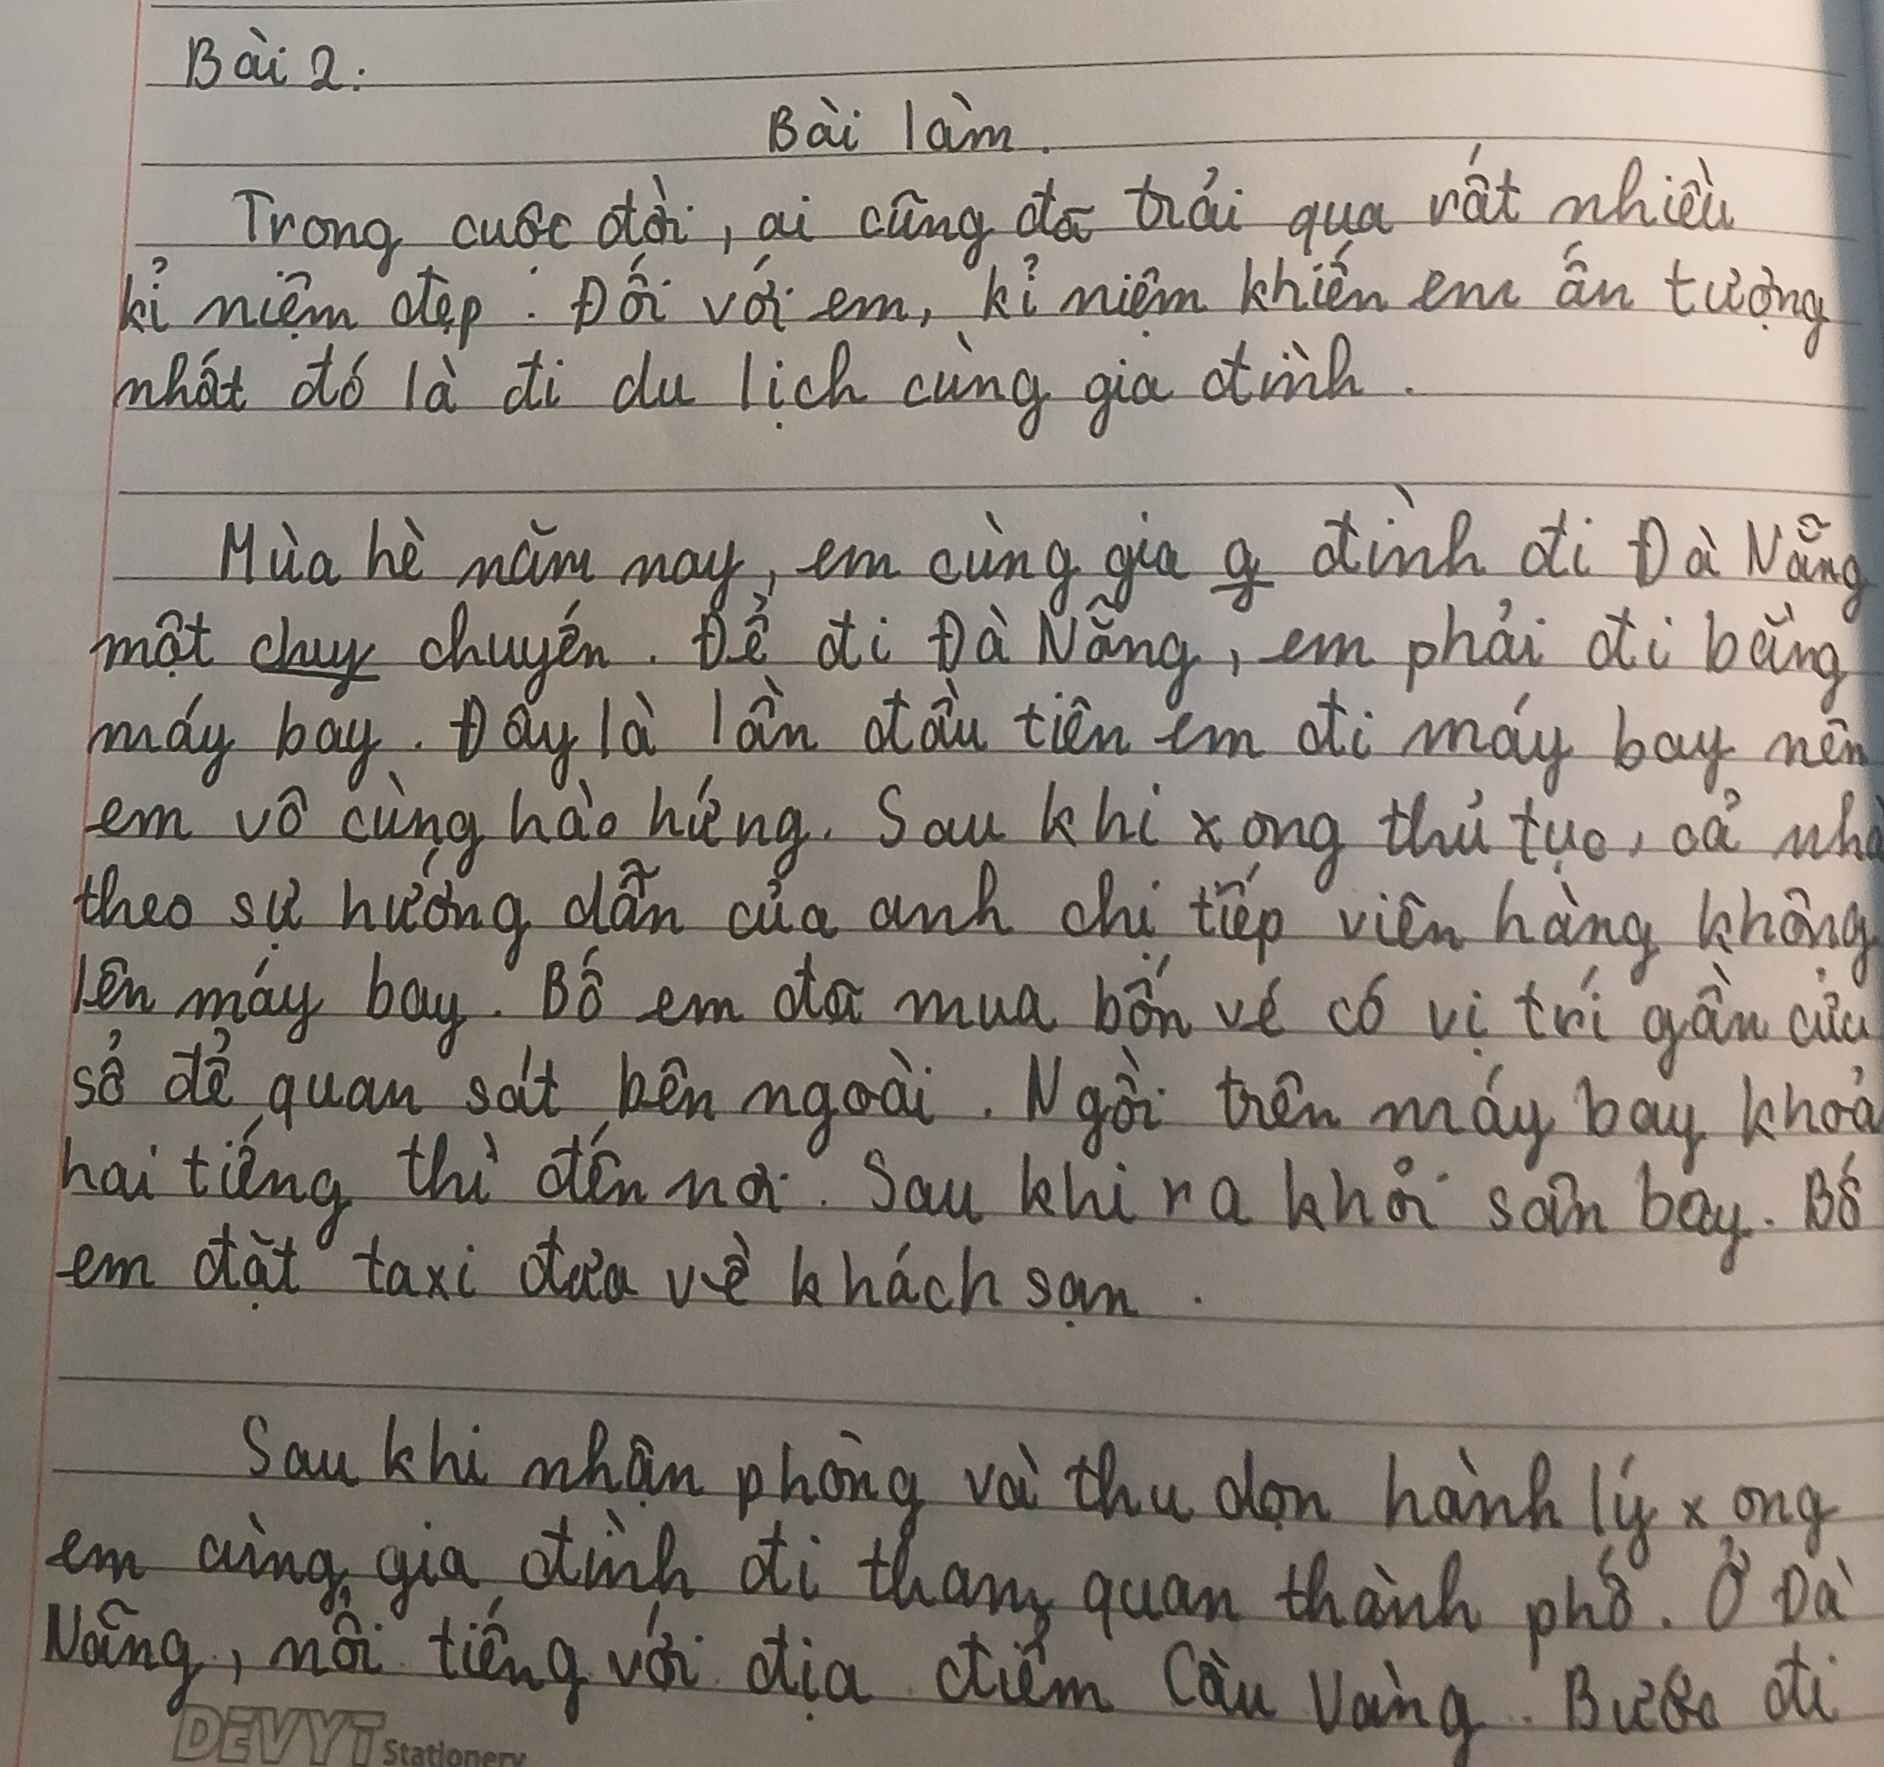 Bài 2:
Bài làm.
Trong cuộc đời, ai cũng đã trải qua rất nhiều
kỉ niệm đẹp. Đối với em, kỉ niệm khiến em ấn tượng
nhất đó là đi du lịch cùng gia đình.
Mùa hè năm nay, em cùng gia g đình đi Đà Nẵng
một chuy chuyến. Để đi Đà Nẵng, em phải đi bằng
máy bay. Đây là lần đầu tiên em đi máy bay nên
em vô cùng hào hứng. Sau khi xong thủ tục, cả nhà
theo sự hướng dẫn của anh chị tiếp viên hàng không
lên máy bay. Bố em đã mua bốn vé có vị trí gần cửa
sổ để quan sát bên ngoài. Ngồi trên máy bay khoả
hai tiếng thì đến nơi. Sau khi ra khỏi sân bay. Bố
em đặt taxi đưa về khách sạn.
Sau khi nhận phòng và thu dọn hành lý xong
em cùng gia đình đi tham quan thành phố. Ở Đà
Nẵng, nổi tiếng với địa điểm Cầu Vàng. Bước đi
DEVYT Stationery